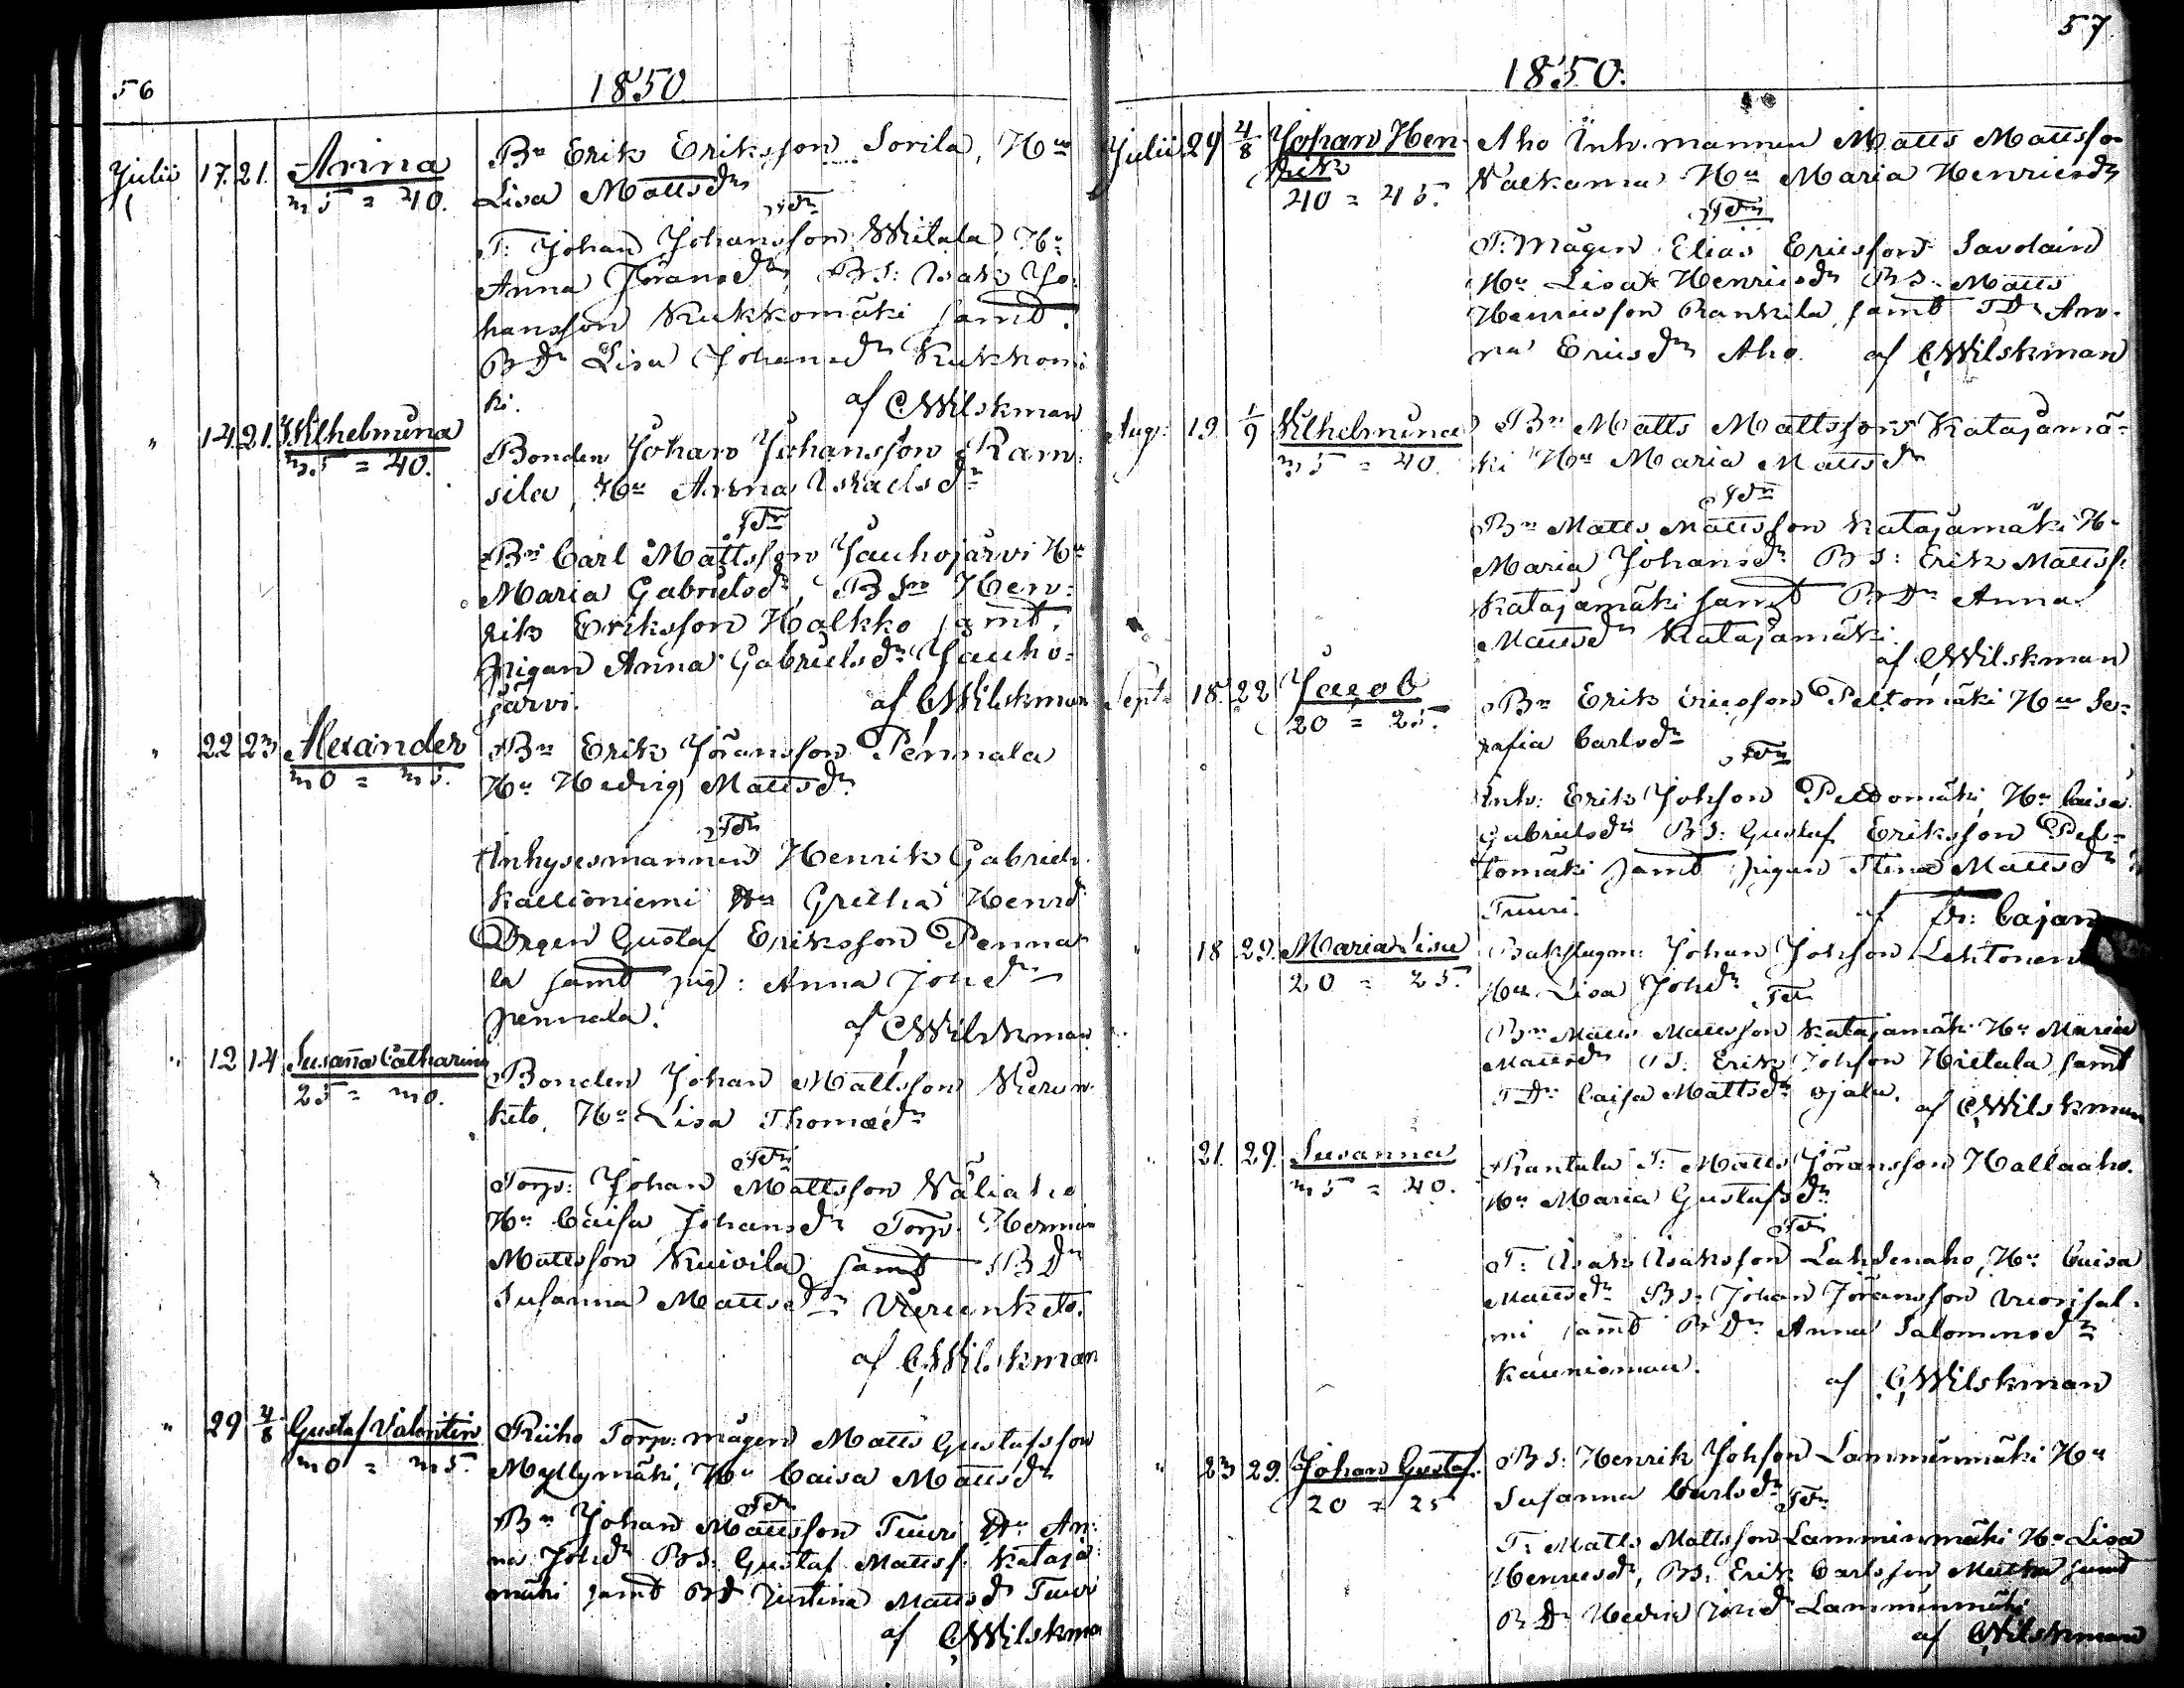 56
1850
Julii 17. 21. Anna
35 = 40.
Bn Erik Eriksson Sorila, Hu
Lisa Mattsdr
Tdn
T: Johan Johansson Wiitala Hu
Anna Göransdr, BS: Isak Jo-
hansson Kukkomäki samt
BDr Lisa Johansdr Kukkomä
ki. af CWilskman
" 14. 21. Wilhelmina
35 = 40.
Bonden Johan Johansson Ram-
sila, Hu Anna Israelsdr
Tdn
Bn Carl Mattsson Jauhojärvi Hu
Maria Gabrielsdr, BSn Hen-
rik Eriksson Halkko samt
pigan Anna Gabrielsdr Jauho-
järvi. af CWilskman
" 22 23 Alexander
30 = 35.
Bn Erik Göransson Pennala
Hu Hedvig Mattsdr
Tdn
Inhysesmannen Henrik Gabriels.
Kallioniemi Hu Gretha Henrd
Drgen Gustaf Eriksson Penna-
la samt pig: Anna Johdr
Pennala. af CWilskman
" 12 14 Susanna Catharina
25 = 30.
Bonden Johan Mattsson Wierun-
keto, Hu Lisa Thomædr
Tdn
Torp: Johan Mattsson Wäliaho
Hu Caisa Johansdr Torp. Herman
Mattsson Kuivila samt BDr
Susanna Mattsdr Wierunketo.
af CWilskman
" 29 4/8 Gustaf Valentin
30 = 35.
Riiho Torp: mågen Matts Gustafsson
Myllymäki, Hu Caisa Mattsdr
Tdn
Bn Johan Mattsson Tuuri Hu An-
na Johdr BS: Gustaf Mattss. Kataja-
mäki samt BD Justina Mattsd Tuuri
af CWilskman
57
1850.
Julii 29 4/8 Johan Hen-
rik
40 = 45.
Aho Inh. mannen Matts Mattsson
Valkama Hu Maria Henricsdr
Tdn
T: Mågen Elias Ericsson Savolain
Hu Lisa Henricsdr BS. Matts
Henricsson Rankila, samt TDr An-
na Ericsdr Aho. af CWilskman
Aug: 19 1/9 Vilhelmina
35 = 40.
Bn Matts Mattsson Katajamä-
ki Hu Maria Mattsdr
Tdn
Bn Matts Mattsson Katajamäki Hu
Maria Johansdr BS: Erik Mattss.
Katajamäki samt BDr Anna
Mattsdr Katajamäki.
af CWilskman
Sept. 18 22 Jacob
20 = 25.
Bn Erik Ericsson Peltomäki Hu Se-
rafia Carlsdr
Tdn
Inh: Erik Johsson Peltomäki, Hu Caisa
Gabrielsdr BS: Gustaf Eriksson Pel-
tomäki samt pigan Stina Mattsdr
Tuuri. af Fr: Cajan
" 18 29. Maria Lisa
20 = 25.
Johan Johsson Lehtonen
Hu Lisa Johdr
Tdn
Bn Matts Mattsson Katajamäki Hu Maria
Mattsdr BS: Erik Johsson Hietala samt
TDr Caisa Mattsdr Ojala. af CWilskman
" 21. 29. Susanna
35 = 40.
Rantala T: Matts Göransson Hallaaho.
Hu Maria Gustafsdr
Tdn
T: Isak Isaksson Lahdenaho, Hu Caisa
Mattsdr BS: Johan Göransson Vuorisal-
mi samt BDr Anna Salomonsdr
Kaunismaa. af CWilskman
" 23 29. Johan Gustaf.
20 = 25
BS: Henrik Johsson Lamminmäki Hu
Susanna Carlsdr
Tdn
T: Matts Mattsson Lamminmäki Hu Lisa
Henricsdr, BS: Erik Carlsson samt
BDr Hedvig Johdr Lamminmäki
af CWilskman